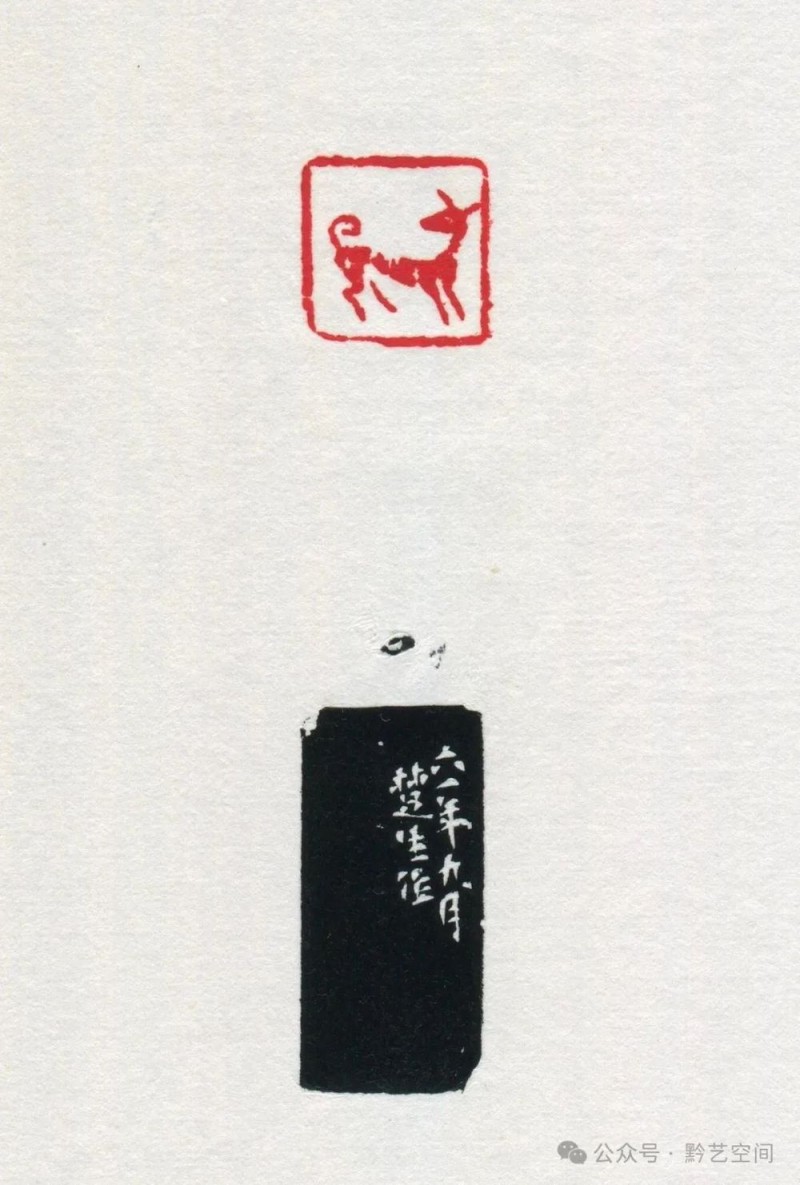 六一年九月
楚生作
公众号·黔艺空间